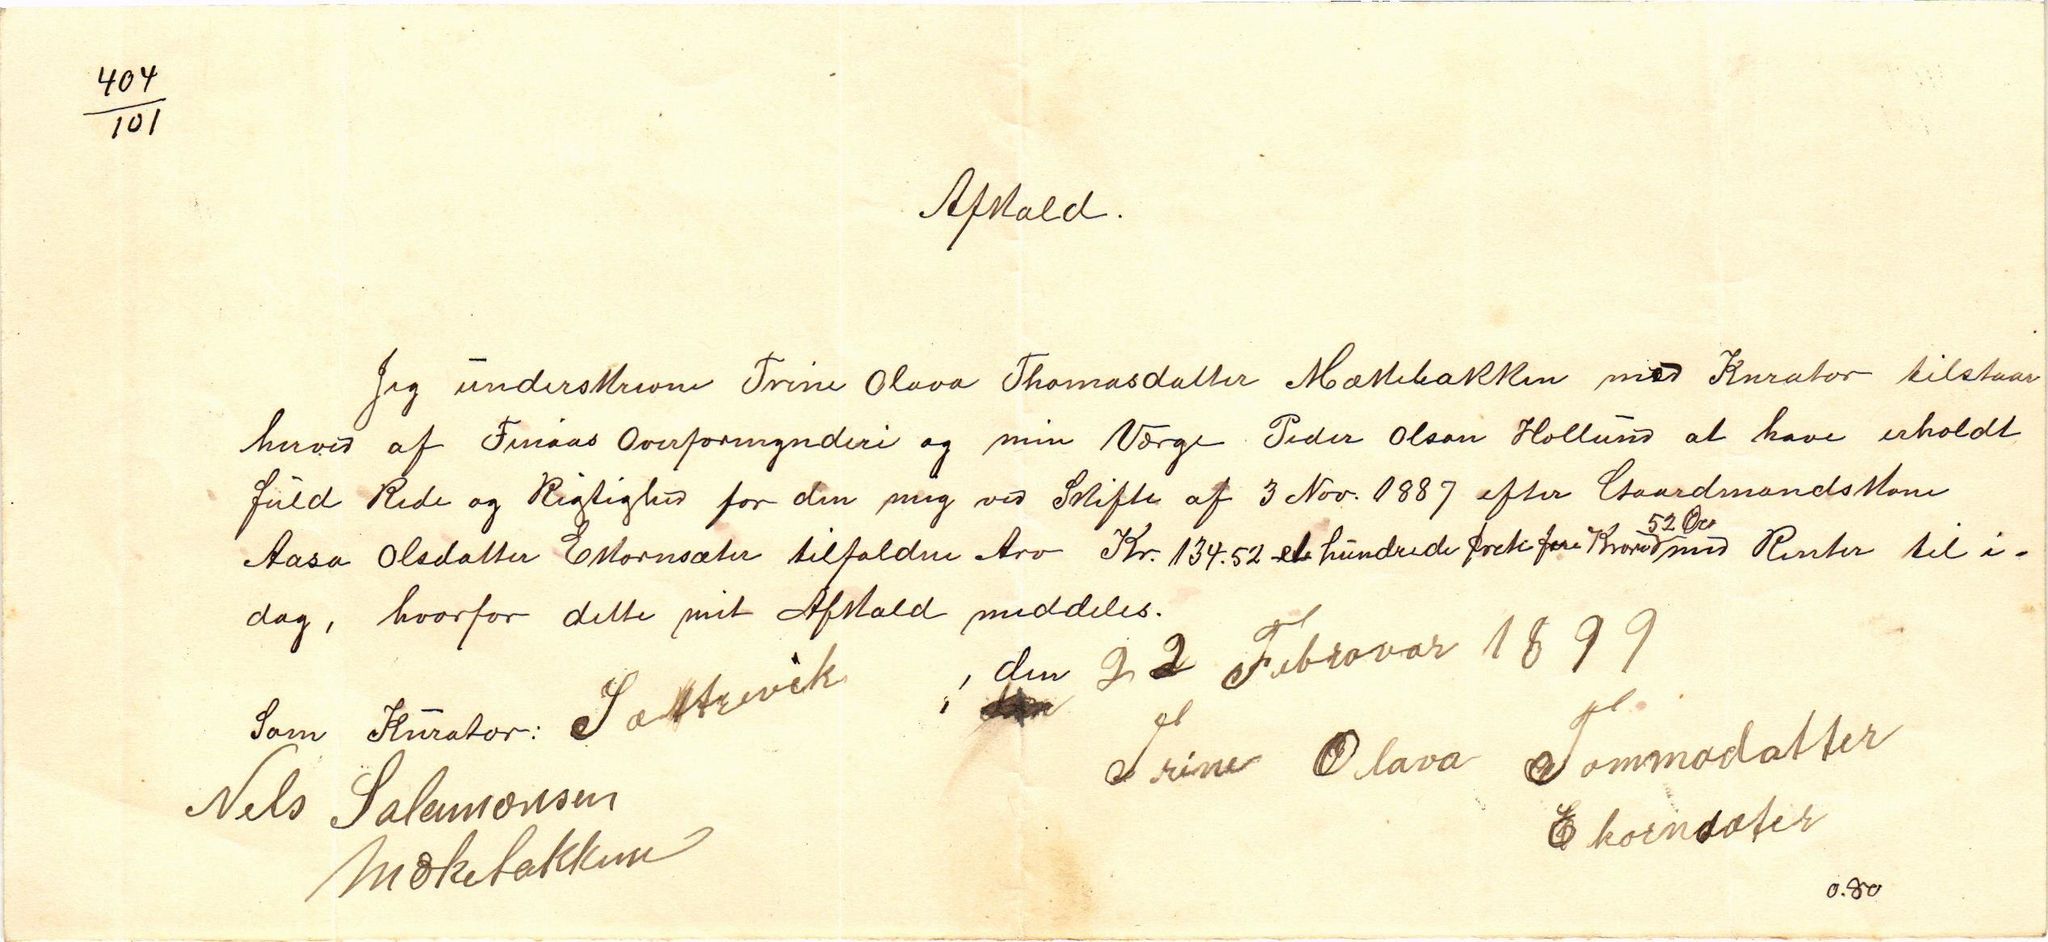 404
101
Afkald.
Jeg underskrevne Trine Olava Thomasdatter Mækkebakken med Kurator tilstaar
herved af Finaas Overformynderi og min Værge Peder Olson Hollund at have erholdt
fuld Rede og Rigtighed for den mig ved Skifte af 3 Nov. 1887 efter Gaardmandskone
52 Øre
Aasa Olsdatter Ekornsæter tilfaldne Arv Kr. 134.52 et hundrede treti fire Kroner med Renter til i-
dag, hvorfor dette mit Afkald meddeles.
Sætrevik , den 22 Februar 1899
Som Kurator:
Trine Olava Tommadatter
Nels Salamonsen
Ekornsæter
Mækebakken
0.80